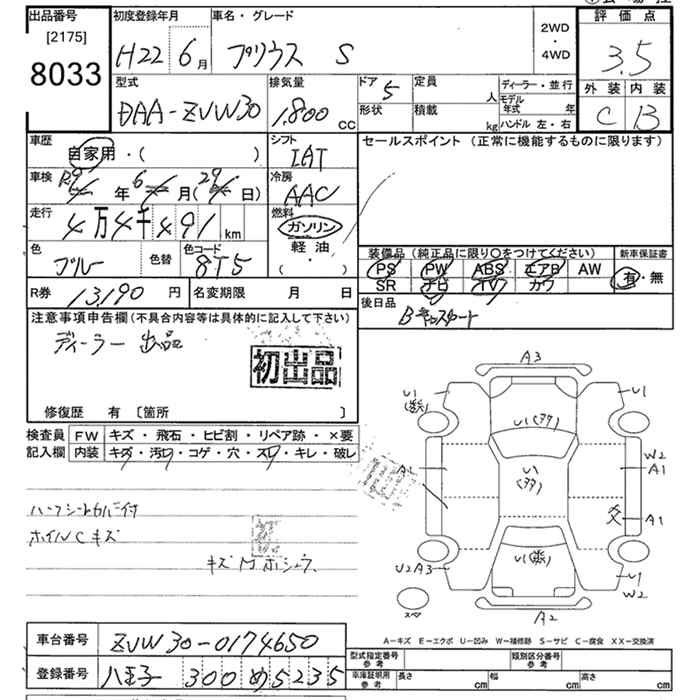 出品番号
[2175]
8033
初度登録年月
H22 6月
車名・グレード
プリウス S
2WD
・
4WD
評価点
3.5
外装 内装
C B
型式
DAA-ZVW30
排気量
1,800 CC
ドア 5
形状
定員 人
積載 kg
ディーラー・並行
モデル年式 年
ハンドル 左・右
車歴
自家用・( )
シフト
IAT
車検
年 月( 日)
冷房
AAC
走行
4万4千491 km
燃料
ガソリン
軽油
( ・ )
色
ブルー
色替
色コード
8T5
セールスポイント (正常に機能するものに限ります)
装備品 (純正品に限り○をつけてください)
PS PW ABS エアB AW
SR ナビ TV カワ
新車保証書
有・無
R券 13,190 円
名変期限 月 日
後日品
注意事項申告欄(不具合内容等は具体的に記入して下さい)
ディーラー出品
初出品
修復歴 有 〔箇所 〕
検査員記入欄
FW キズ・飛石・ヒビ割・リペア跡・×要
内装 キズ・汚れ・コゲ・穴・スレ・キレ・破レ
ハーフシートカバー付
ホイルCキズ
A3
U1
U1
U1
U1
A1
W2
A1
A1
U2A3
U1
U1
W2
A2
スペ
A-キズ E-エクボ U-凹み W-補修跡 S-サビ C-腐食 XX-交換済
車台番号
ZVW30-0174650
登録番号
八王子 300 め 5235
型式指定番号
参考
類別区分番号
参考
車庫証明用
参考
長さ cm
幅 cm
高さ cm